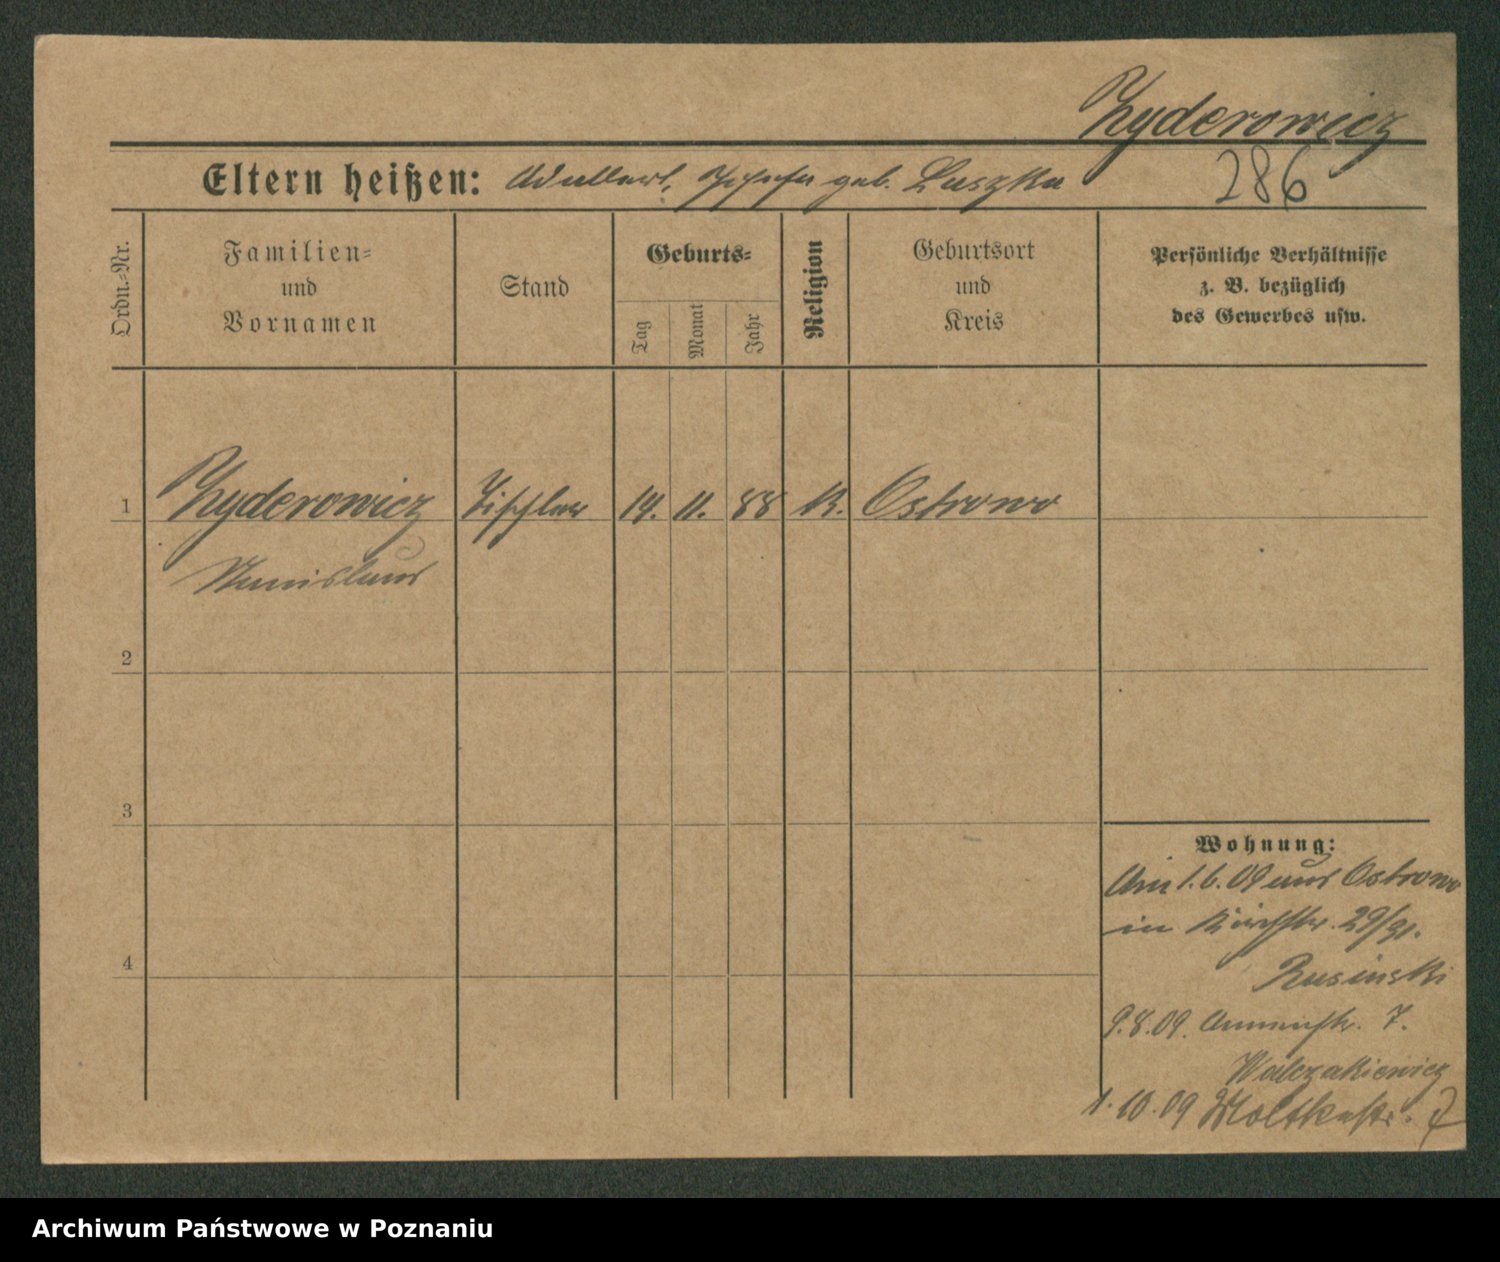 Zyderowicz
286
Eltern heißen: Adalbert, Josefa geb. Luszka
Ordn.-Nr.
Familien-
und
Vornamen
Stand
Geburts-
Tag
Monat
Jahr
Religion
Geburtsort
und
Kreis
Persönliche Verhältnisse
z. B. bezüglich
des Gewerbes usw.
1 Zyderowicz Tischler 14. 11. 88 K. Ostrowo
Stanislaus
2
3
4
Wohnung:
Am 1.6.09 aus Ostrowo
in Kirchstr. 29/
Rusinski
9.8.09. Annenstr. 7.
Walczakiewicz
1.10.09 Moltkestr. 7
Archiwum Państwowe w Poznaniu